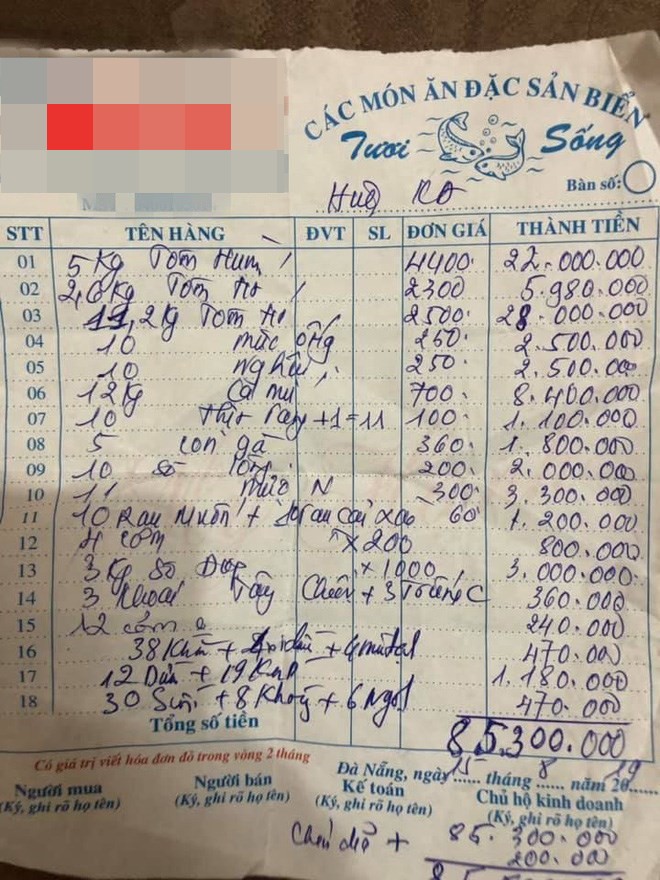 CÁC MÓN ĂN ĐẶC SẢN BIỂN
Tươi Sống
Bàn số:
STT TÊN HÀNG ĐVT SL ĐƠN GIÁ THÀNH TIỀN
01 5 Kg Tôm Hùm 4400 22.000.000
02 2,6 Kg Tôm 2300 5.980.000
03 11,2 Kg Tôm 2500 28.000.000
04 10 mực ống 250 2.500.000
05 10 nghêu 250 2.500.000
06 12 Kg Cá mú 700 8.400.000
07 10 +1=11 100 1.100.000
08 5 con gà 360 1.800.000
09 10 sò lông 200 2.000.000
10 11 mực N 300 3.300.000
11 10 Rau Muốn + 10 rau cải xào 60 1.200.000
12 4 cơm x200 800.000
13 3 Kg x1000 3.000.000
14 3 Khoai Tây Chiên + 3 Trứng C 360.000
15 12 240.000
16 38 Khăn + 470.000
17 12 Dừa + 19 1.180.000
18 30 + 8 + 6 470.000
Tổng số tiền 85.300.000
Có giá trị viết hóa đơn đỏ trong vòng 2 tháng
Đà Nẵng, ngày 15 tháng 8 năm 2019
Người mua Người bán Kế toán Chủ hộ kinh doanh
(Ký, ghi rõ họ tên) (Ký, ghi rõ họ tên) (Ký, ghi rõ họ tên) (Ký, ghi rõ họ tên)
+ 85.300.000
200.000